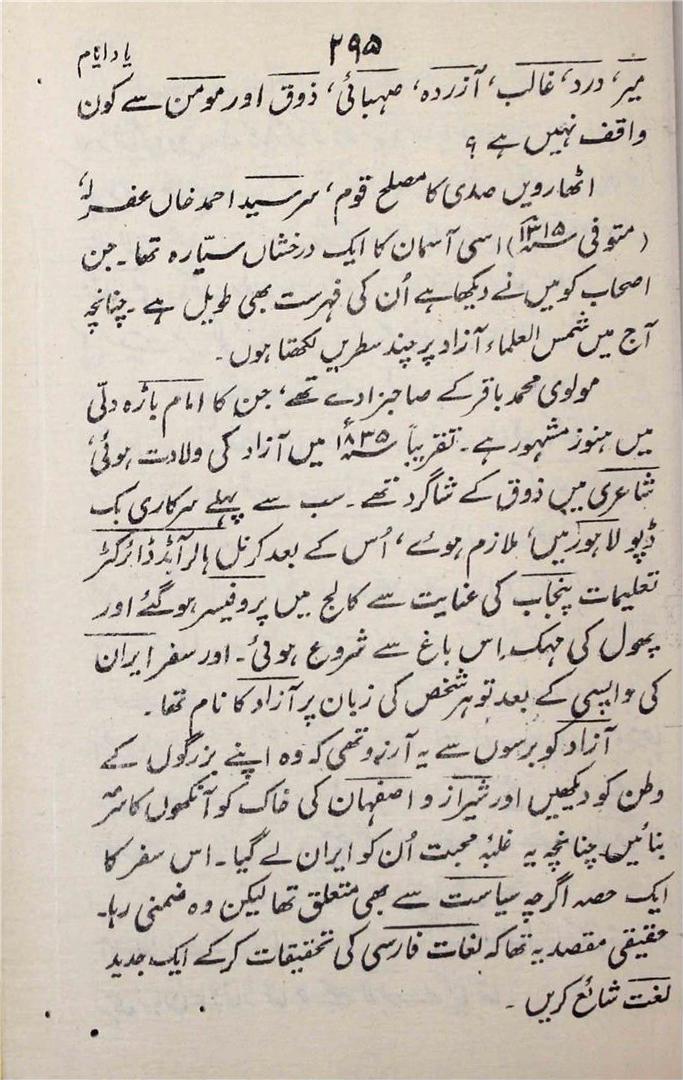 ۲۹۵
یاد ایام
میر، درد، غالب، آزردہ، صہبائی، ذوق اور مومن سے کون
واقف نہیں ہے ؟
اٹھارویں صدی کا مصلح قوم، سر سید احمد خاں غفرلہٗ
(متوفی ۱۳۱۵ھ) اسی آسمان کا ایک درخشاں سیّارہ تھا۔ جن
اصحاب کو میں نے دیکھا ہے اُن کی فہرست بھی طویل ہے۔ چنانچہ
آج میں شمس العلماء آزاد پر چند سطریں لکھتا ہوں۔
مولوی محمد باقر کے صاحبزادے تھے، جن کا امام باڑہ دلّی
میں ہنوز مشہور ہے۔ تقریباً ۱۸۳۵ء میں آزاد کی ولادت ہوئی،
شاعری میں ذوق کے شاگرد تھے۔ سب سے پہلے سرکاری بک
ڈپو لاہور میں، ملازم ہوے، اُس کے بعد کرنل ہالرائڈ ڈائرکٹر
تعلیمات پنجاب کی عنایت سے کالج میں پروفیسر ہو گئے اور
پھول کی مہک اِس باغ سے شروع ہوئی۔ اور سفر ایران
کی واپسی کے بعد تو ہر شخص کی زبان پر آزاد کا نام تھا۔
آزاد کو برسوں سے یہ آرزو تھی کہ وہ اپنے بزرگوں کے
وطن کو دیکھیں اور شیراز و اصفہان کی خاک کو آنکھوں کا سرمہ
بنائیں چنانچہ یہ غلبۂ محبت اُن کو ایران لے گیا۔ اس سفر کا
ایک حصہ اگرچہ سیاست سے بھی متعلق تھا لیکن وہ ضمنی رہا۔
حقیقی مقصد یہ تھا کہ لغات فارسی کی تحقیقات کر کے ایک جدید
لغت شائع کریں۔